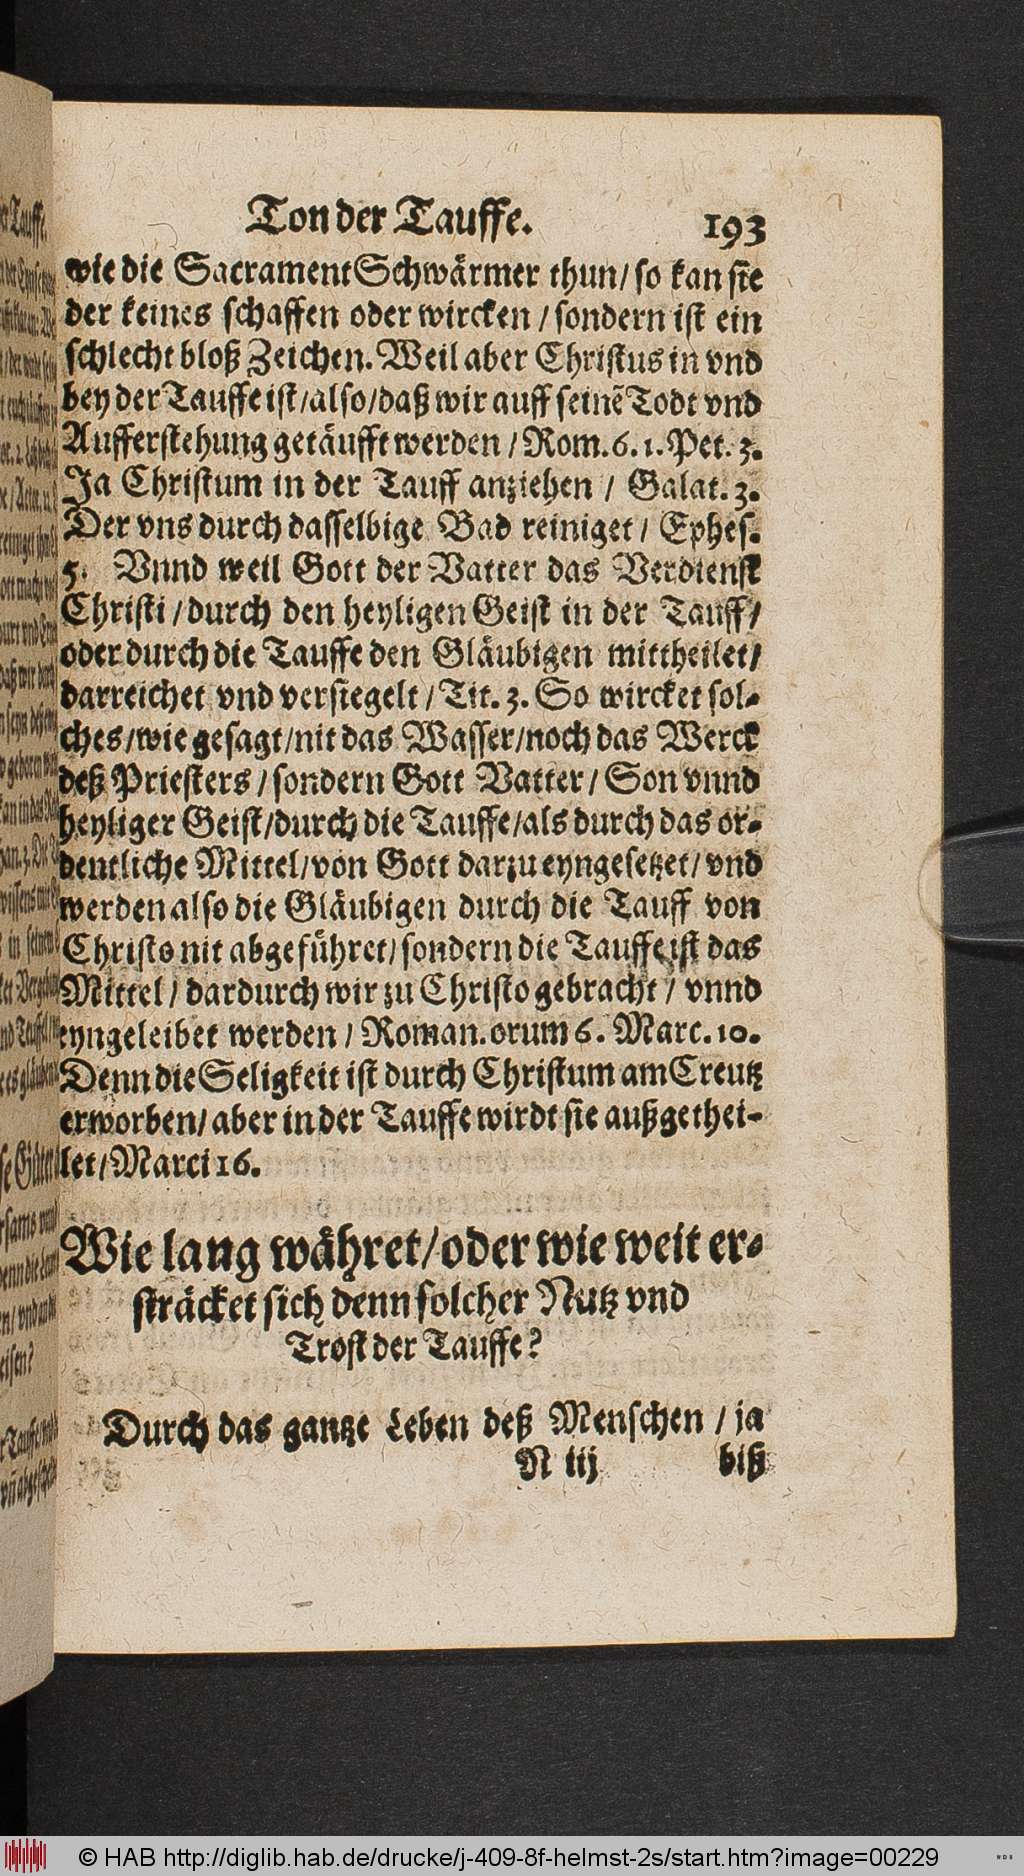 Ton der Tauffe. 193
wie die SacramentSchwärmer thun/ so kan sie
der keines schaffen oder wircken / sondern ist ein
schlecht bloß Zeichen. Weil aber Christus in vnd
bey der Tauffe ist/also/daß wir auff seinẽ Todt vnd
Aufferstehung getäufft werden / Rom. 6. 1. Pet. 3.
Ja Christum in der Tauff anziehen / Galat. 3.
Der vns durch dasselbige Bad reiniget / Ephes.
5. Vnnd weil Gott der Vatter das Verdienst
Christi / durch den heyligen Geist in der Tauff/
oder durch die Tauffe den Gläubigen mittheilet/
darreichet vnd versiegelt / Tit. 3. So wircket sol-
ches/wie gesagt/nit das Wasser/noch das Werck
deß Priesters / sondern Gott Vatter / Son vnnd
heyliger Geist/durch die Tauffe/als durch das or-
dentliche Mittel/von Gott darzu eyngesetzet/ vnd
werden also die Gläubigen durch die Tauff von
Christo nit abgeführet/ sondern die Tauffe ist das
Mittel / dardurch wir zu Christo gebracht / vnnd
eyngeleibet werden / Roman.orum 6. Marc. 10.
Denn die Seligkeit ist durch Christum am Creutz
erworben/ aber in der Tauffe wirdt sie außgethei-
let/Marci 16.
Wie lang währet/oder wie weit er-
sträcket sich denn solcher Nutz vnd
Trost der Tauffe?
Durch das gantze Leben deß Menschen / ja
N iij biß
© HAB http://diglib.hab.de/drucke/j-409-8f-helmst-2s/start.htm?image=00229